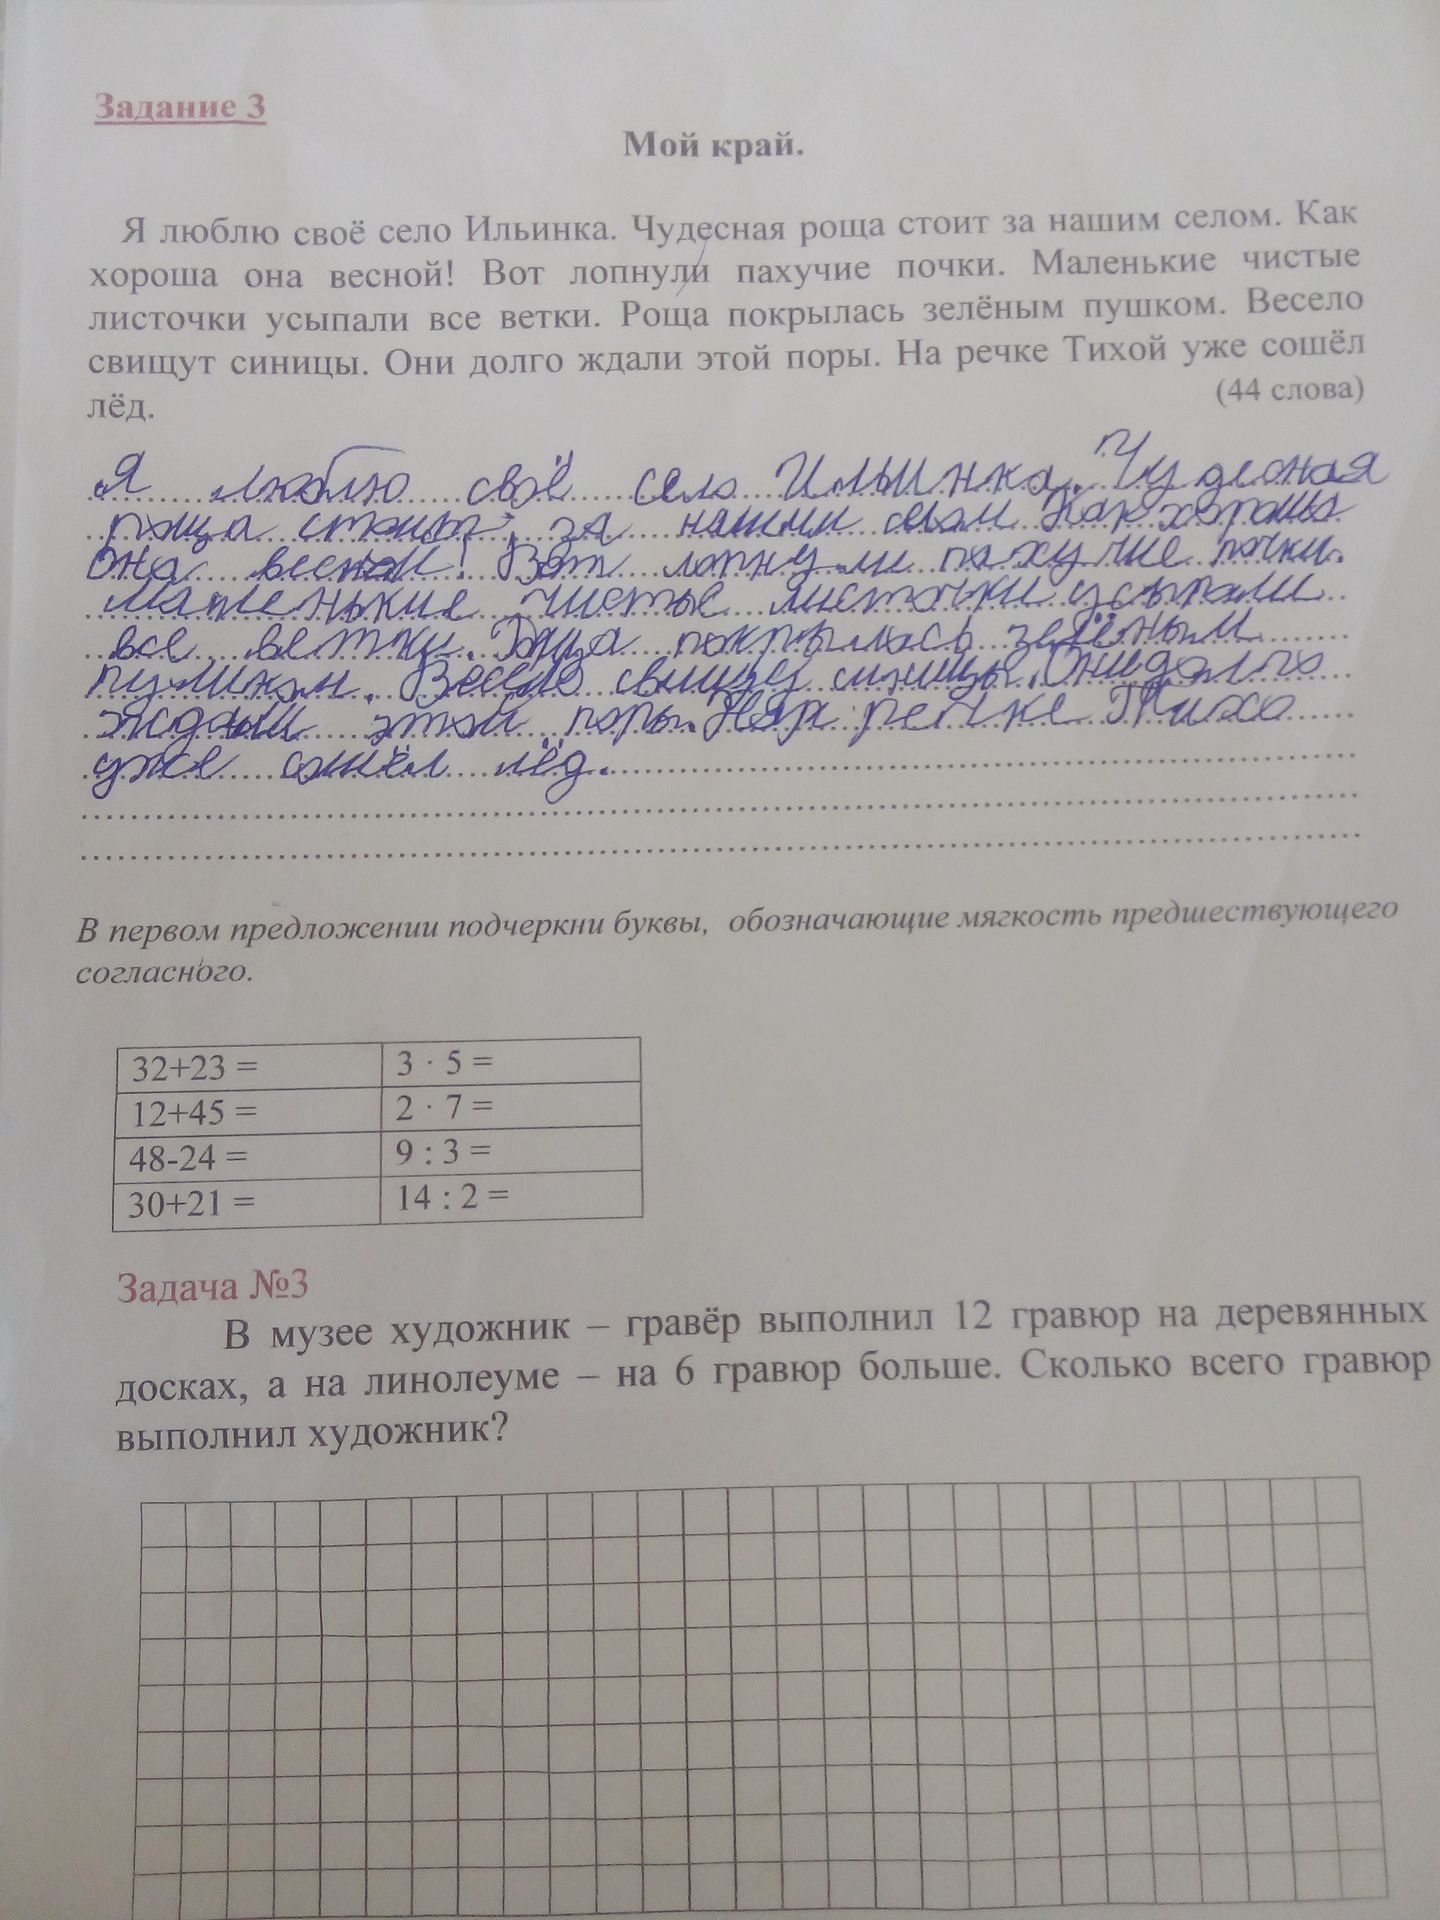 Задание 3
Мой край.
Я люблю своё село Ильинка. Чудесная роща стоит за нашим селом. Как
хороша она весной! Вот лопнули пахучие почки. Маленькие чистые
листочки усыпали все ветки. Роща покрылась зелёным пушком. Весело
свищут синицы. Они долго ждали этой поры. На речке Тихой уже сошёл
лёд.
(44 слова)
Я люблю своё село Ильинка. Чудесная
роща стоит за нашим селом Как хороша
она весной! Вот лопнули пахучие почки.
Маленькие чистые листочки усыпали
все ветки. Роща покрылась зелёным
пушком. Весело синицы. Они долго
ждали этой поры. речке Тихо
уже сошёл лёд.
В первом предложении подчеркни буквы, обозначающие мягкость предшествующего
согласного.
32+23 = 3 · 5 =
12+45 = 2 · 7 =
48-24 = 9 : 3 =
30+21 = 14 : 2 =
Задача №3
В музее художник – гравёр выполнил 12 гравюр на деревянных
досках, а на линолеуме – на 6 гравюр больше. Сколько всего гравюр
выполнил художник?